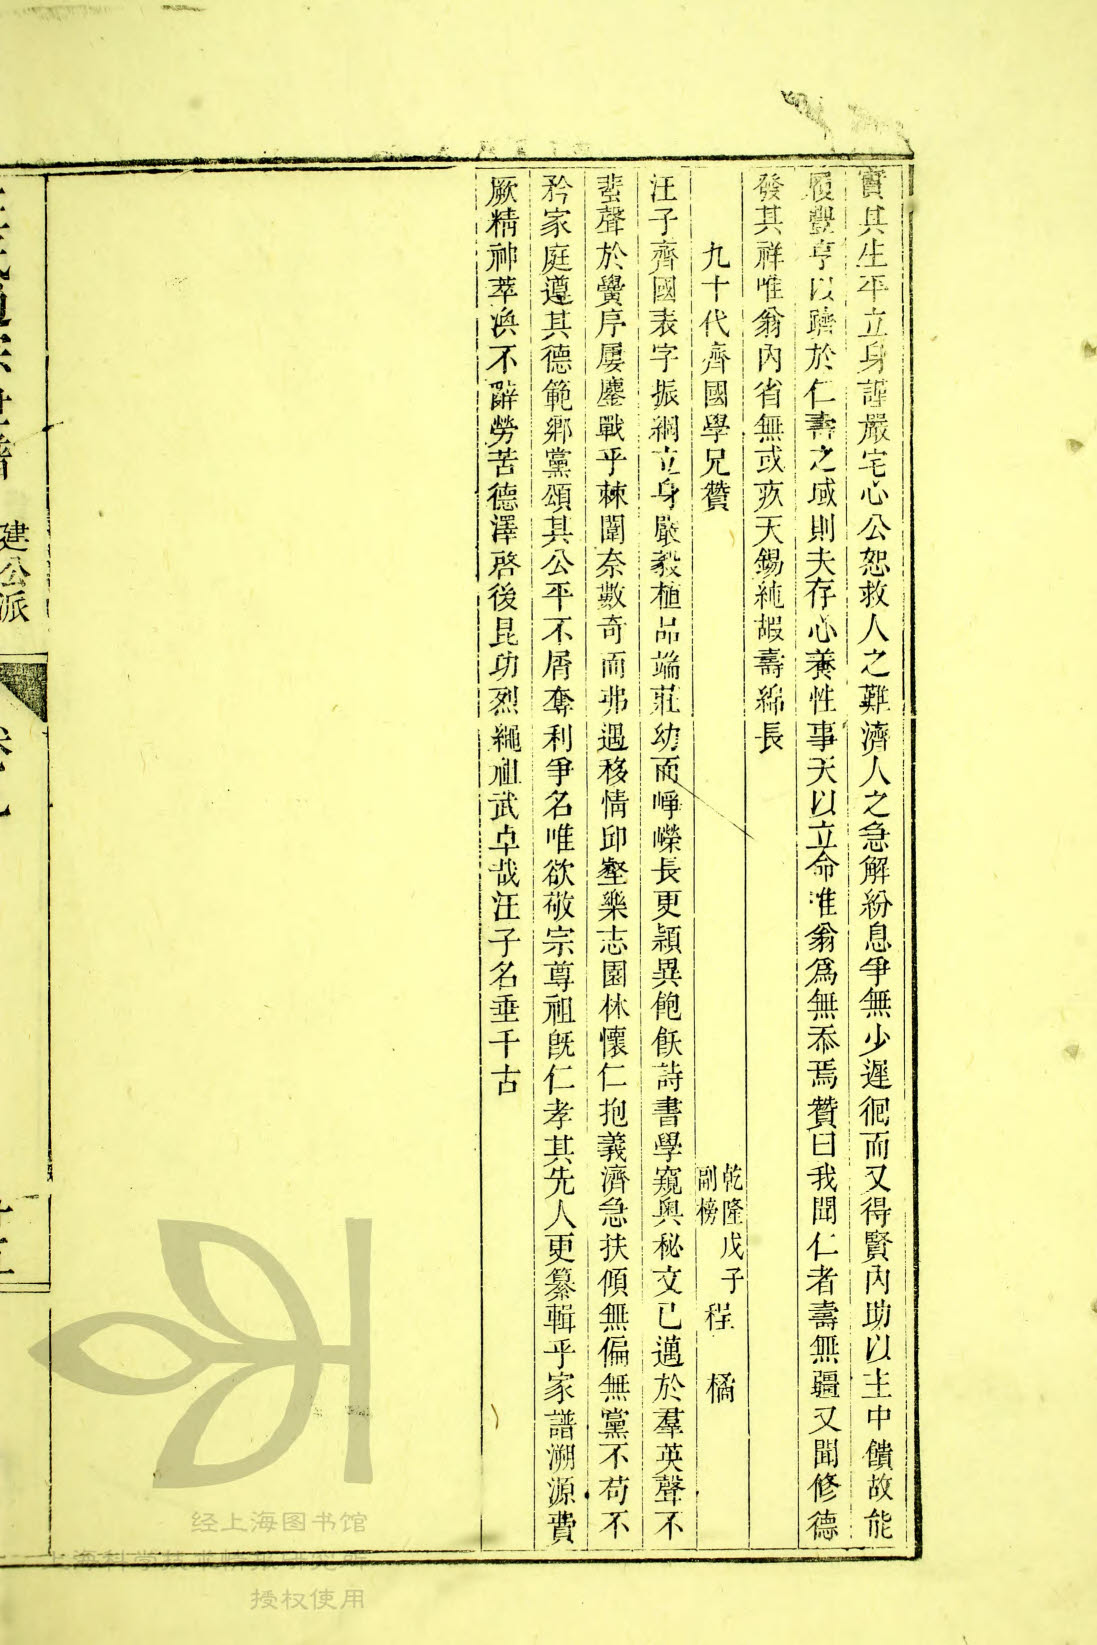 實其生平立身謹嚴宅心公恕救人之難濟人之急解紛息爭無少遲徊而又得賢內助以主中饋故能
履豐亨以躋於仁壽之域則夫存心養性事天以立命惟翁爲無忝焉贊曰我聞仁者壽無疆又聞修德
發其祥唯翁內省無或疚天錫純嘏壽綿長
九十代齊國學兄贊
乾隆戊子
副榜
程橘
汪子齊國表字振綱立身嚴毅植品端莊幼而崢嶸長更穎異飽飫詩書學窺奧秘文已邁於羣英聲不
蜚聲於黌序屢鏖戰乎棘闈奈數奇而弗遇移情邱壑樂志園林懷仁抱義濟急扶傾無偏無黨不苟不
矜家庭遵其德範鄉黨頌其公平不屑奪利爭名唯欲敬宗尊祖旣仁孝其先人更纂輯乎家譜溯源費
厥精神萃渙不辭勞苦德澤啓後昆功烈繩祖武卓哉汪子名垂千古
建公派
经上海图书馆
上海科学技术情报研究所
授权使用